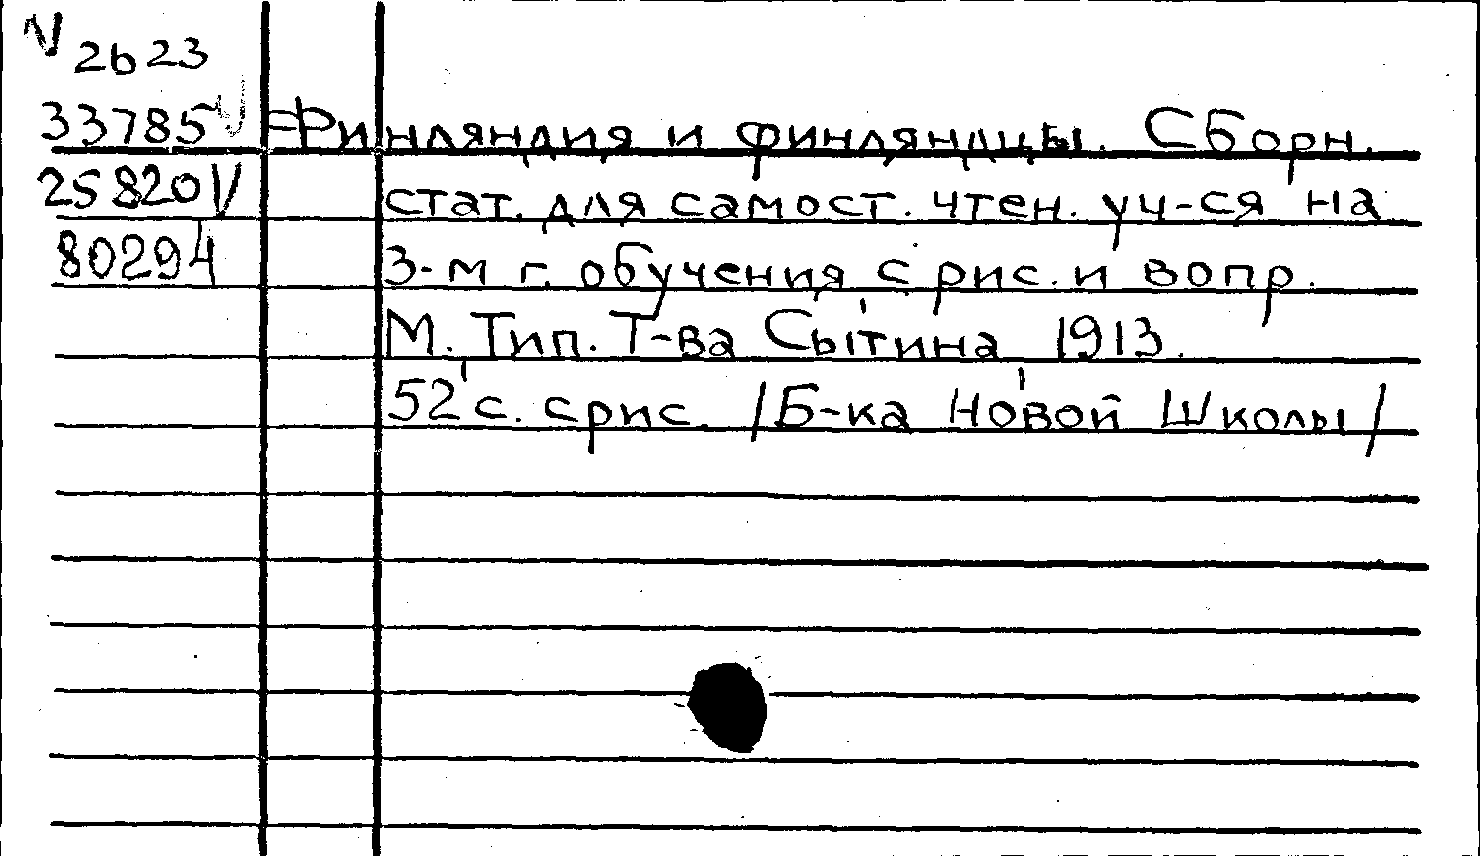 V 2b23
33785 V Финляндия и финляндцы. Сборн.
25820 V стат. для самост. чтен. уч-ся на
80294 3-м г. обучения с рис. и вопр.
М. Тип. Т-ва Сытина 1913.
52 с. с рис. /Б-ка Новой Школы/